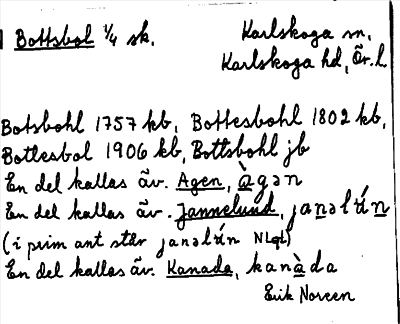 Bottsbol ¼ sk. Karlskoga sn.
Karlskoga hd, Ör. l.
Botsbohl 1757 kb, Bottesbohl 1802 kb,
Botlesbol 1906 kb, Bottsbohl jb
En del kallas äv. Agen, àgən
En del kallas äv. Jannelund, janəlún
(i prim ant står janəlún NLgl)
En del kallas äv. Kanada, kanàda
Erik Noreen